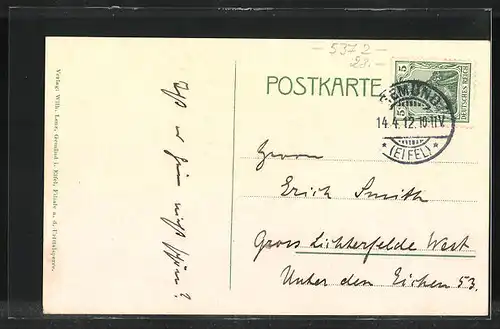 - 5372 -
POSTKARTE
5
DEUTSCHES REICH
GEMÜND
14.4.12.10-11V.
* (EIFEL) *
Herrn
Erich Smith
Gross Lichterfelde West
Unter den Eichen 53.
Ist es hier nicht schön?
Verlag: Wilh. Gemünd i. Eifel, Filiale a. d. Urfttalsperre.